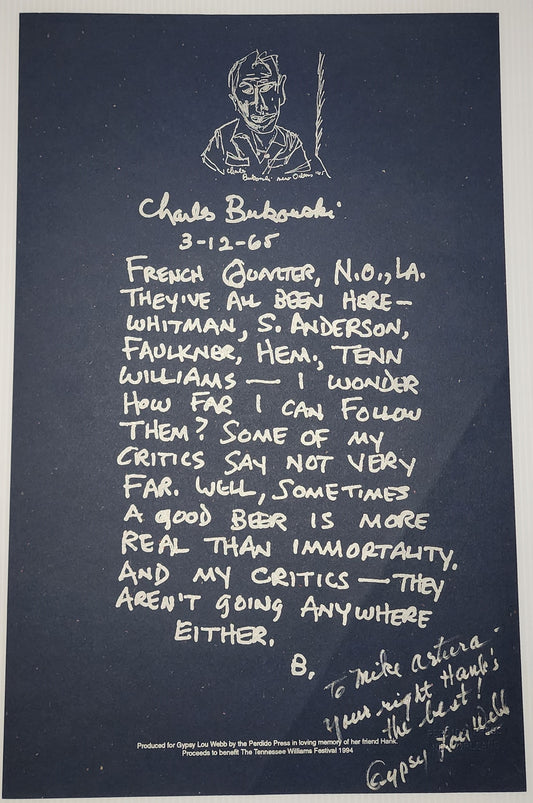 Charles
Bukowski New Orleans
Charles Bukowski
3-12-65
FRENCH QUARTER, N.O., LA.
THEY'VE ALL BEEN HERE—
WHITMAN, S. ANDERSON,
FAULKNER, HEM., TENN
WILLIAMS — I WONDER
HOW FAR I CAN FOLLOW
THEM? SOME OF MY
CRITICS SAY NOT VERY
FAR. WELL, SOMETIMES
A GOOD BEER IS MORE
REAL THAN IMMORTALITY.
AND MY CRITICS — THEY
AREN'T GOING ANYWHERE
EITHER.
B.
To Mike
your right Hank's
the best!
Gypsy Lou Webb
Produced for Gypsy Lou Webb by the Perdido Press in loving memory of her friend Hank.
Proceeds to benefit The Tennessee Williams Festival 1994